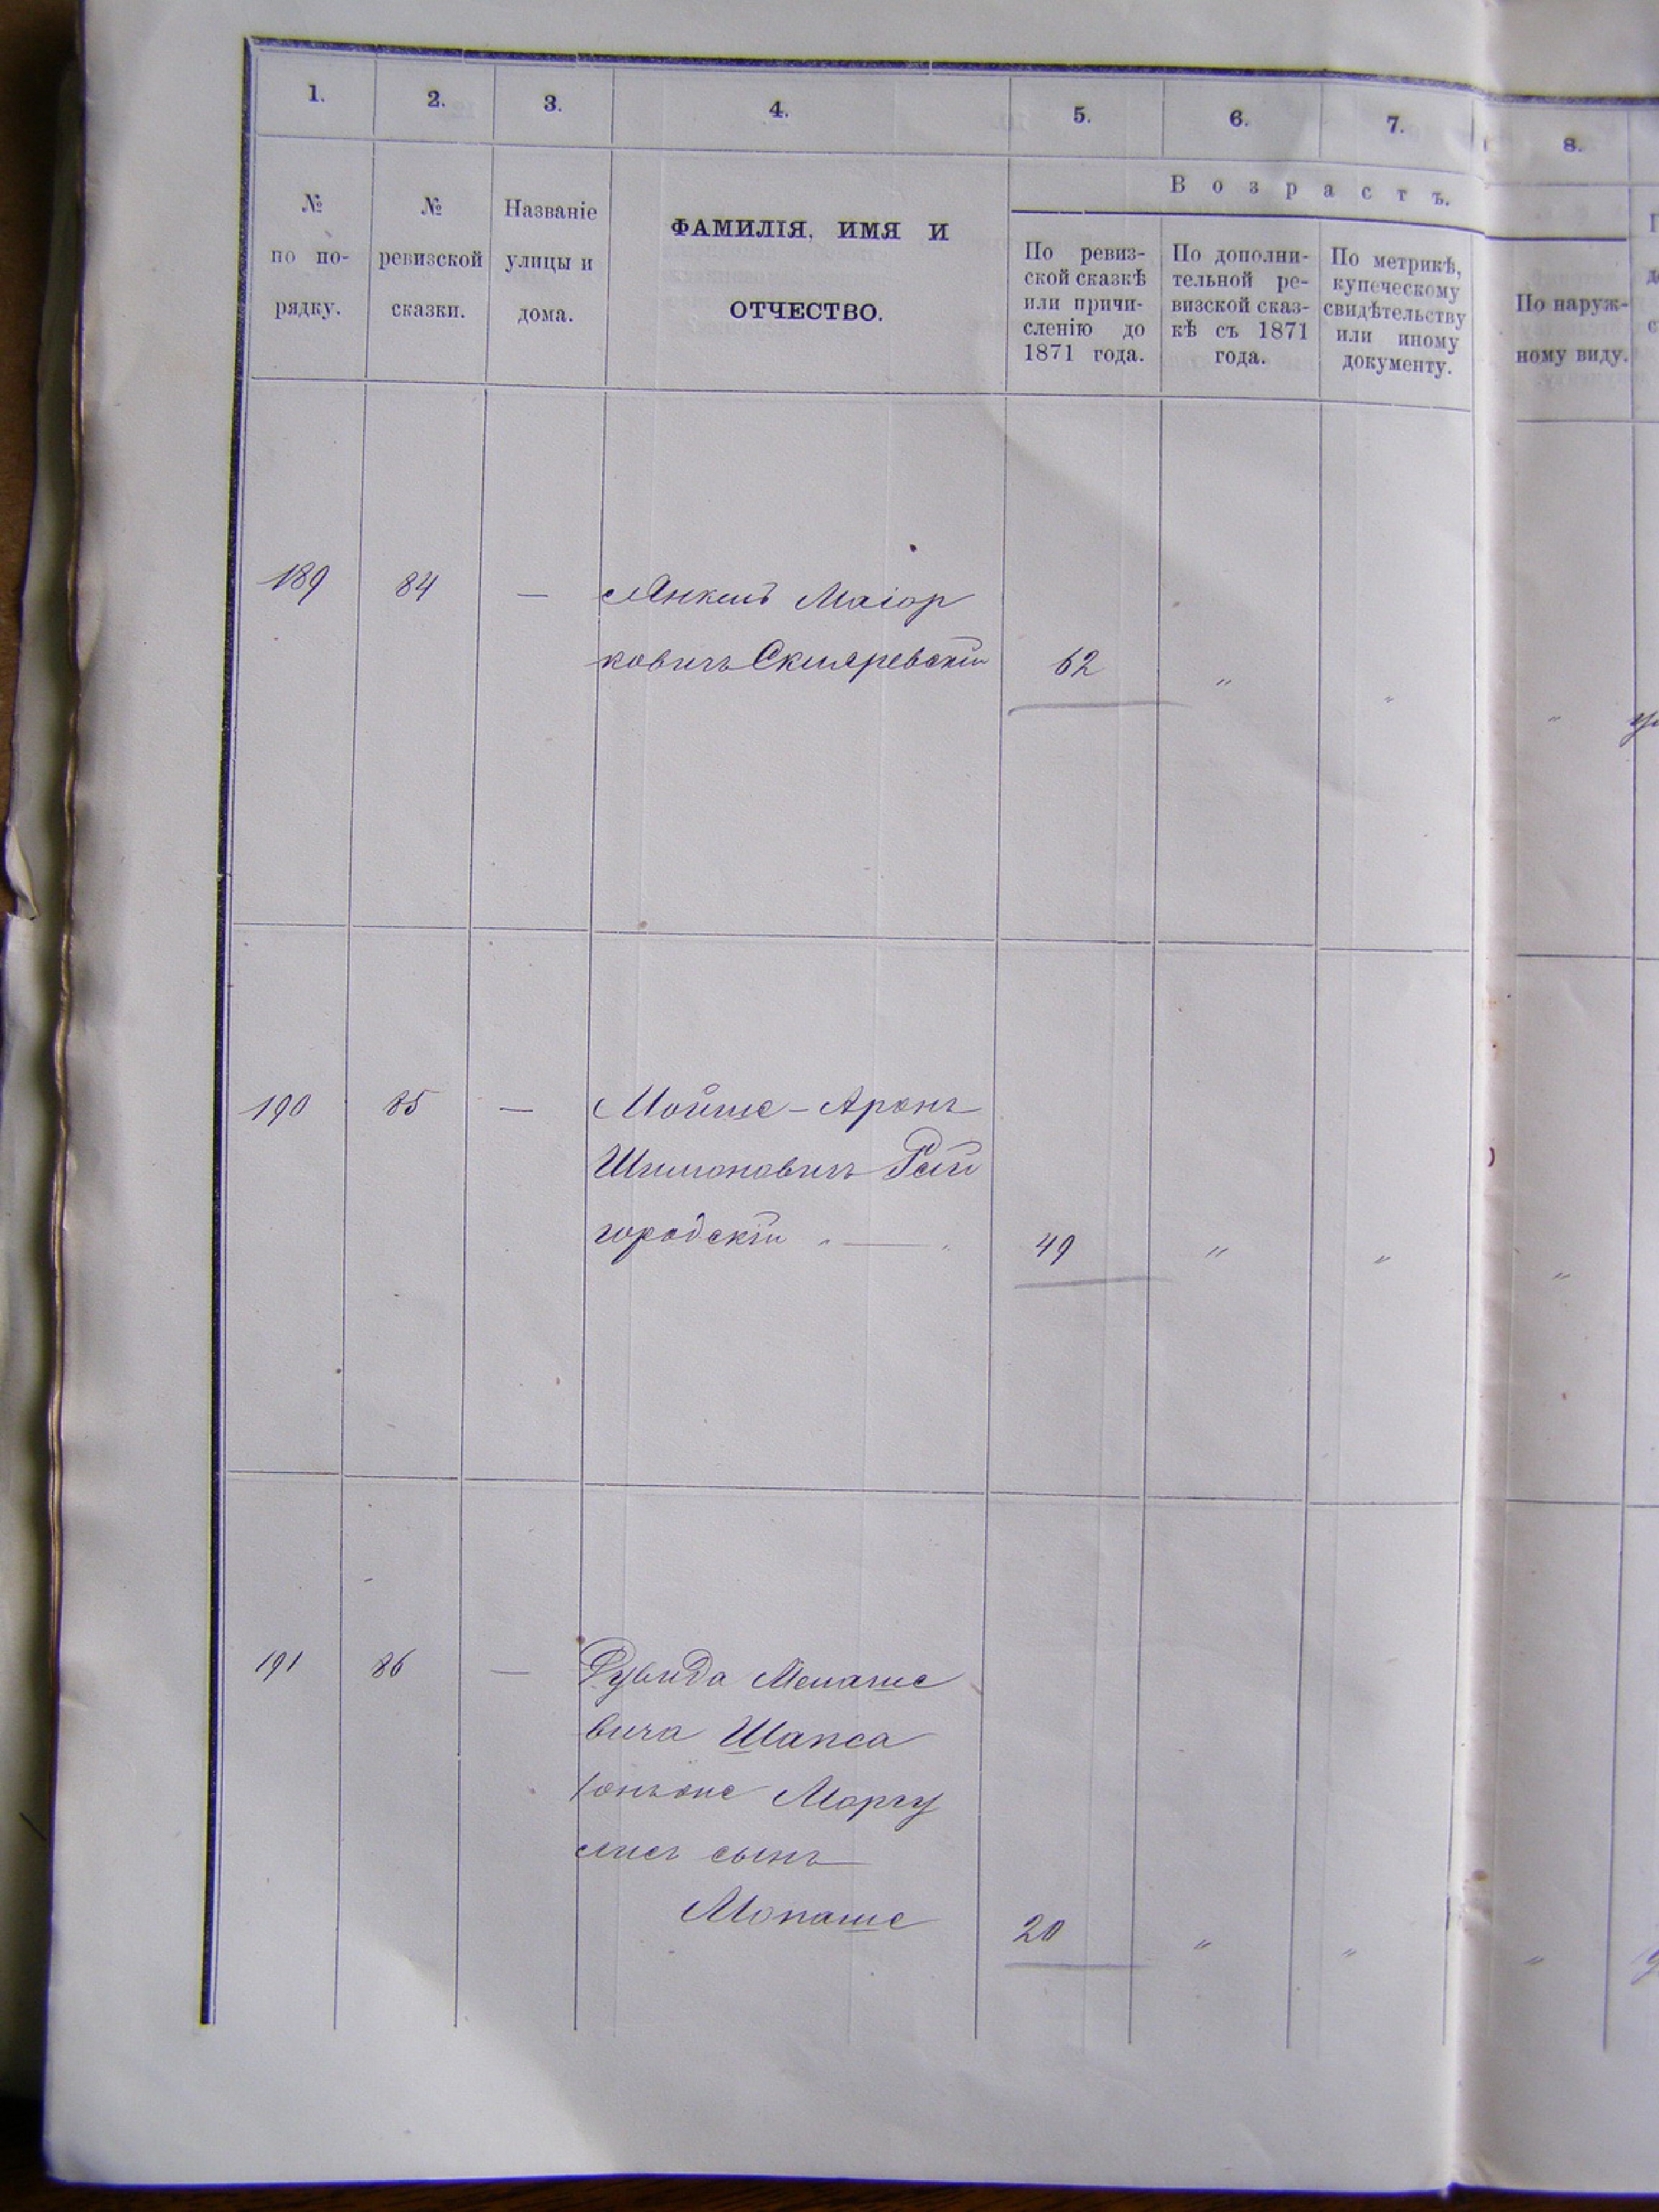 1. 2. 3. 4. 5. 6. 7. 8.
№ по по- рядку.
№ ревизской сказки.
Названіе улицы и дома.
ФАМИЛІЯ, ИМЯ И
ОТЧЕСТВО.
Возрастъ.
По ревиз-
ской сказкѣ
или причи-
сленію до
1871 года.
По дополни-
тельной ре-
визской сказ-
кѣ съ 1871
года.
По метрикѣ,
купеческому
свидѣтельству
или иному
документу.
По наруж-
ному виду.
189 84 — Янкель Маіор
ковичъ Скляревскій 62 " " "
190 85 — Мойше-Аронъ
Шимоновичъ Рай
городскій 49 " " "
191 86 — Рувида Менаше
вича Шапса
Маргу
лисъ сынъ
Монаше 20 " " "